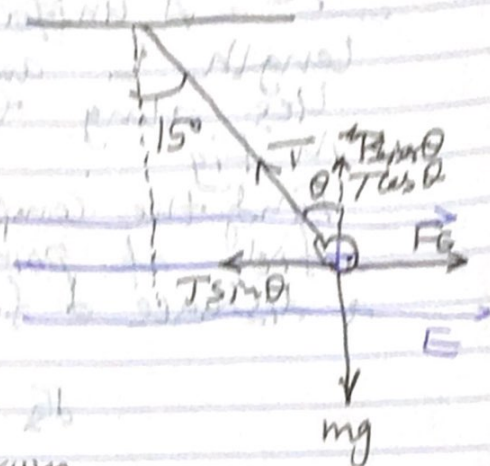 15°
T
θ
Tcosθ
FE
Tsinθ
E
mg